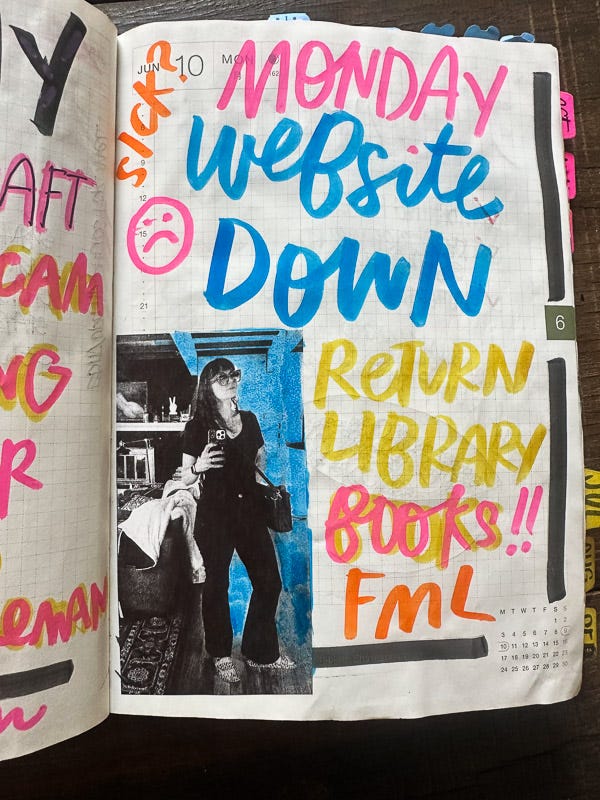 Y
AFT
CAM
NG
R
emAN
JUN 10 MON
SICK?
MONDAY
website
DOWN
9
12
15
21
6
ReTURN
LIBRARY
BOOKS!!
FML
M T W T F S S
1 2
3 4 5 6 7 8 9
10 11 12 13 14 15 16
17 18 19 20 21 22 23
24 25 26 27 28 29 30
OCT